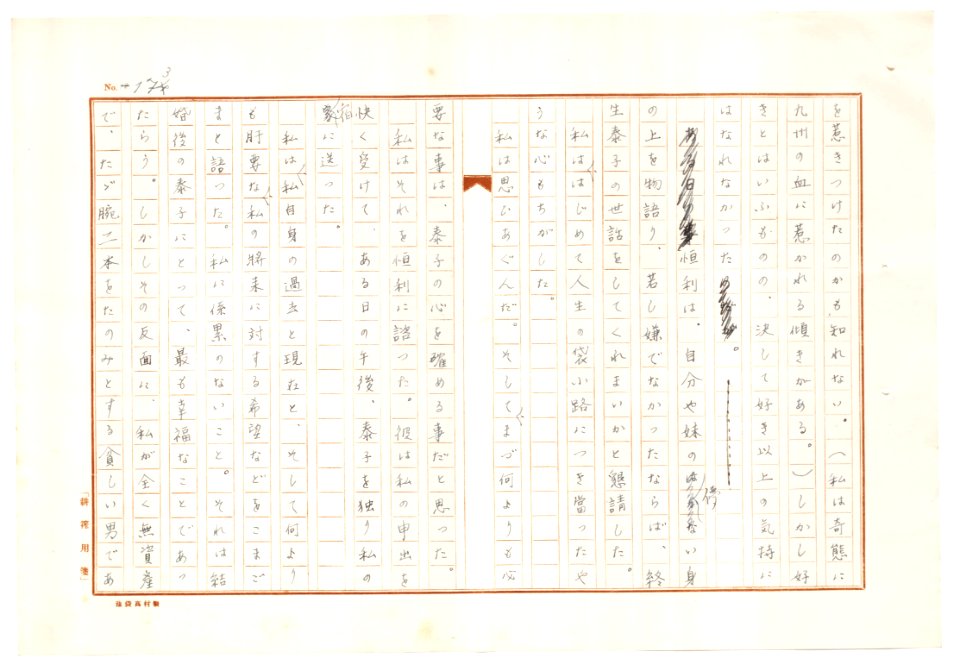 を惹きつけたのかも知れない。(私は奇態に
九州の血に惹かれる傾きがある。)しかし好
きとはいふものの、決して好き以上の気持に
はなれなかった。
恒利は、自分や妹の儚い身
の上を物語り、若し嫌でなかったならば、終
生泰子の世話をしてくれまいかと懇請した。
私ははじめて人生の袋小路につき當ったや
うな心もちがした。
私は思ひあぐんだ。そしてまづ何よりも必
要な事は、泰子の心を確める事だと思った。
私はそれを恒利に諮った。彼は私の申出を
快く受けて、ある日の午後、泰子を独り私の
宿に送った。
私は私自身の過去と現在と、そして何より
も肝要な私の将来に対する希望などをこまご
まと語った。私に係累のないこと。それは結
婚後の泰子にとって、最も幸福なことであっ
たらう。しかしその反面に、私が全く無資産
で、たゞ腕二本をたのみとする貧しい男であ
No. 173
「耕稿用箋」